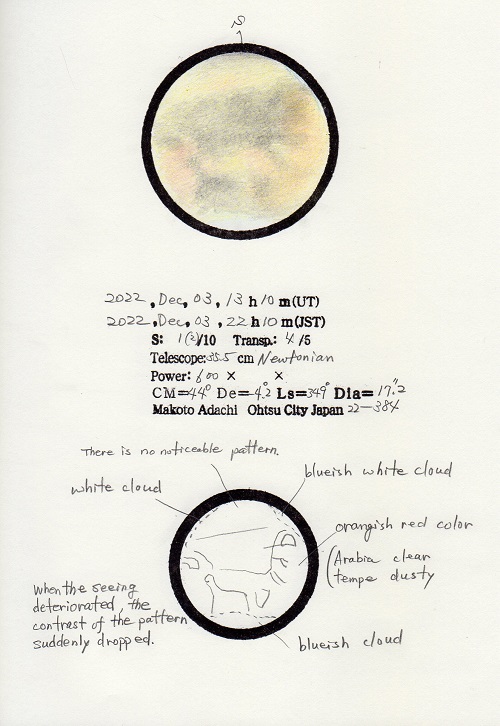 S
2022, Dec, 03, 13 h 10 m(UT)
2022, Dec, 03, 22 h 10 m(JST)
S: 1(2)/10 Transp.: 4/5
Telescope:35.5 cm Newtonian
Power: 600 × ×
CM=44° De=-4.2° Ls=349° Dia=17.2"
Makoto Adachi Ohtsu City Japan 22-384
There is no noticeable pattern.
blueish white cloud
white cloud
orangish red color
(Arabia clear
tempe dusty
When the seeing
deteriorated, the
contrast of the pattern
suddenly dropped.
blueish cloud